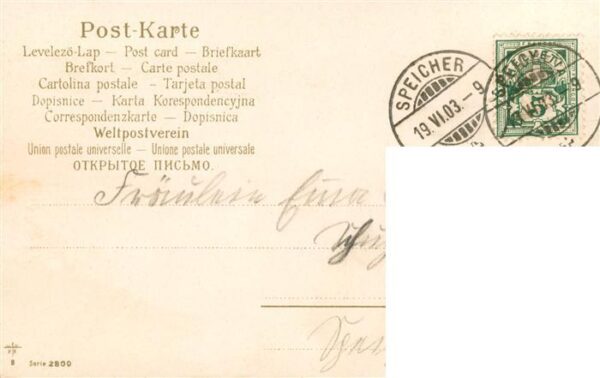 Post-Karte
Levelező-Lap — Post card — Briefkaart
Brefkort — Carte postale
Cartolina postale — Tarjeta postal
Dopisnice — Karta Korespondencyjna
Correspondenzkarte — Dopisnica
Weltpostverein
Union postale universelle — Unione postale universale
ОТКРЫТОЕ ПИСЬМО.
SPEICHER
19.VI.03.–9
5
Fräulein
8
Serie 2809